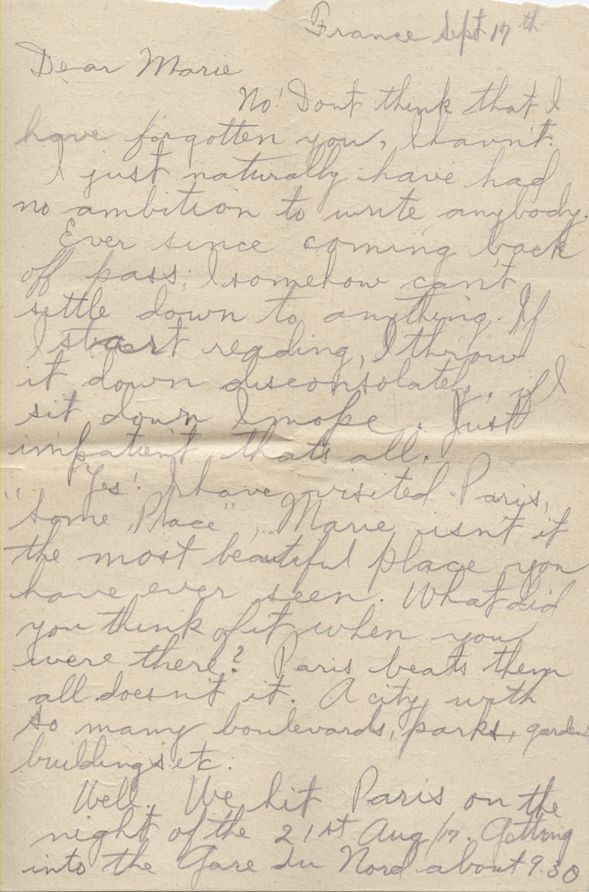 France Sept 17th
Dear Marie
No! Dont think that I
have forgotten you, I havn't.
I just naturally have had
no ambition to write anybody.
Ever since coming back
off pass; I somehow can't
settle down to anything. If
I start reading, I throw
it down disconsolately, if I
sit down I mope. Just
impatient thats all.
Yes! I have visited Paris,
"Some Place", Marie isn't it
the most beautiful place you
have ever seen. What did
you think of it when you
were there? Paris beats them
all doesn't it. A city with
so many boulevards, parks, gardens
buildings etc.
Well. We hit Paris on the
night of the 21st Aug/17. Getting
into the Gare du Nord about 9.30